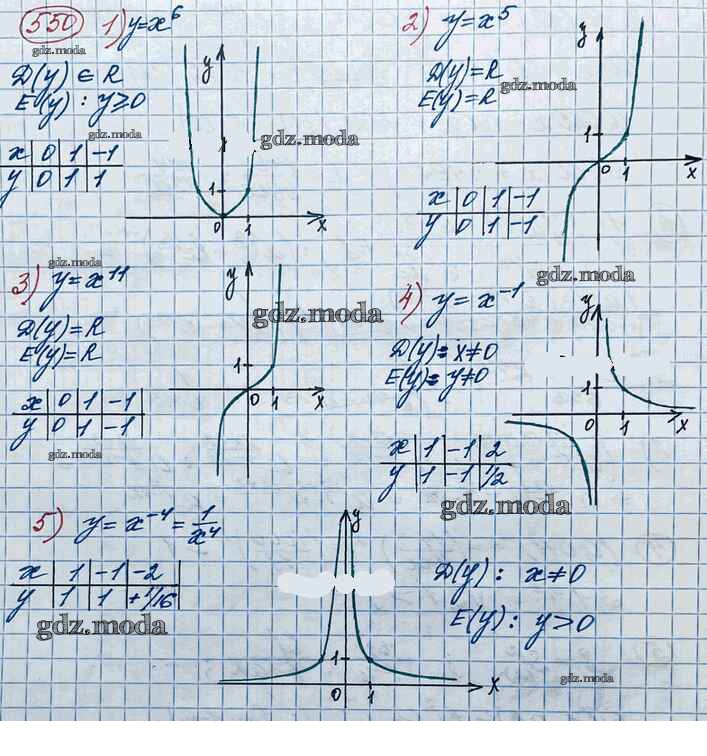 550 1) y=x⁶
gdz.moda
D(y) ∈ R
E(y) : y≥0
gdz.moda
x | 0 | 1 | -1
y | 0 | 1 | 1
y
gdz.moda
1
0 1 x
2) y=x⁵
D(y)=R
gdz.moda
E(y)=R
x | 0 | 1 | -1
y | 0 | 1 | -1
y
1
0 1 x
gdz.moda
gdz.moda
3) y=x¹¹
D(y)=R
E(y)=R
x | 0 | 1 | -1
y | 0 | 1 | -1
gdz.moda
y
gdz.moda
1
0 1 x
4) y=x⁻¹
D(y)= x≠0
E(y)= y≠0
x | 1 | -1 | 2
y | 1 | -1 | 1/2
gdz.moda
y
1
0 1 x
5) y=x⁻⁴=1/x⁴
x | 1 | -1 | -2
y | 1 | 1 | +1/16
gdz.moda
y
1
0 1 x
D(y): x≠0
E(y): y>0
gdz.moda